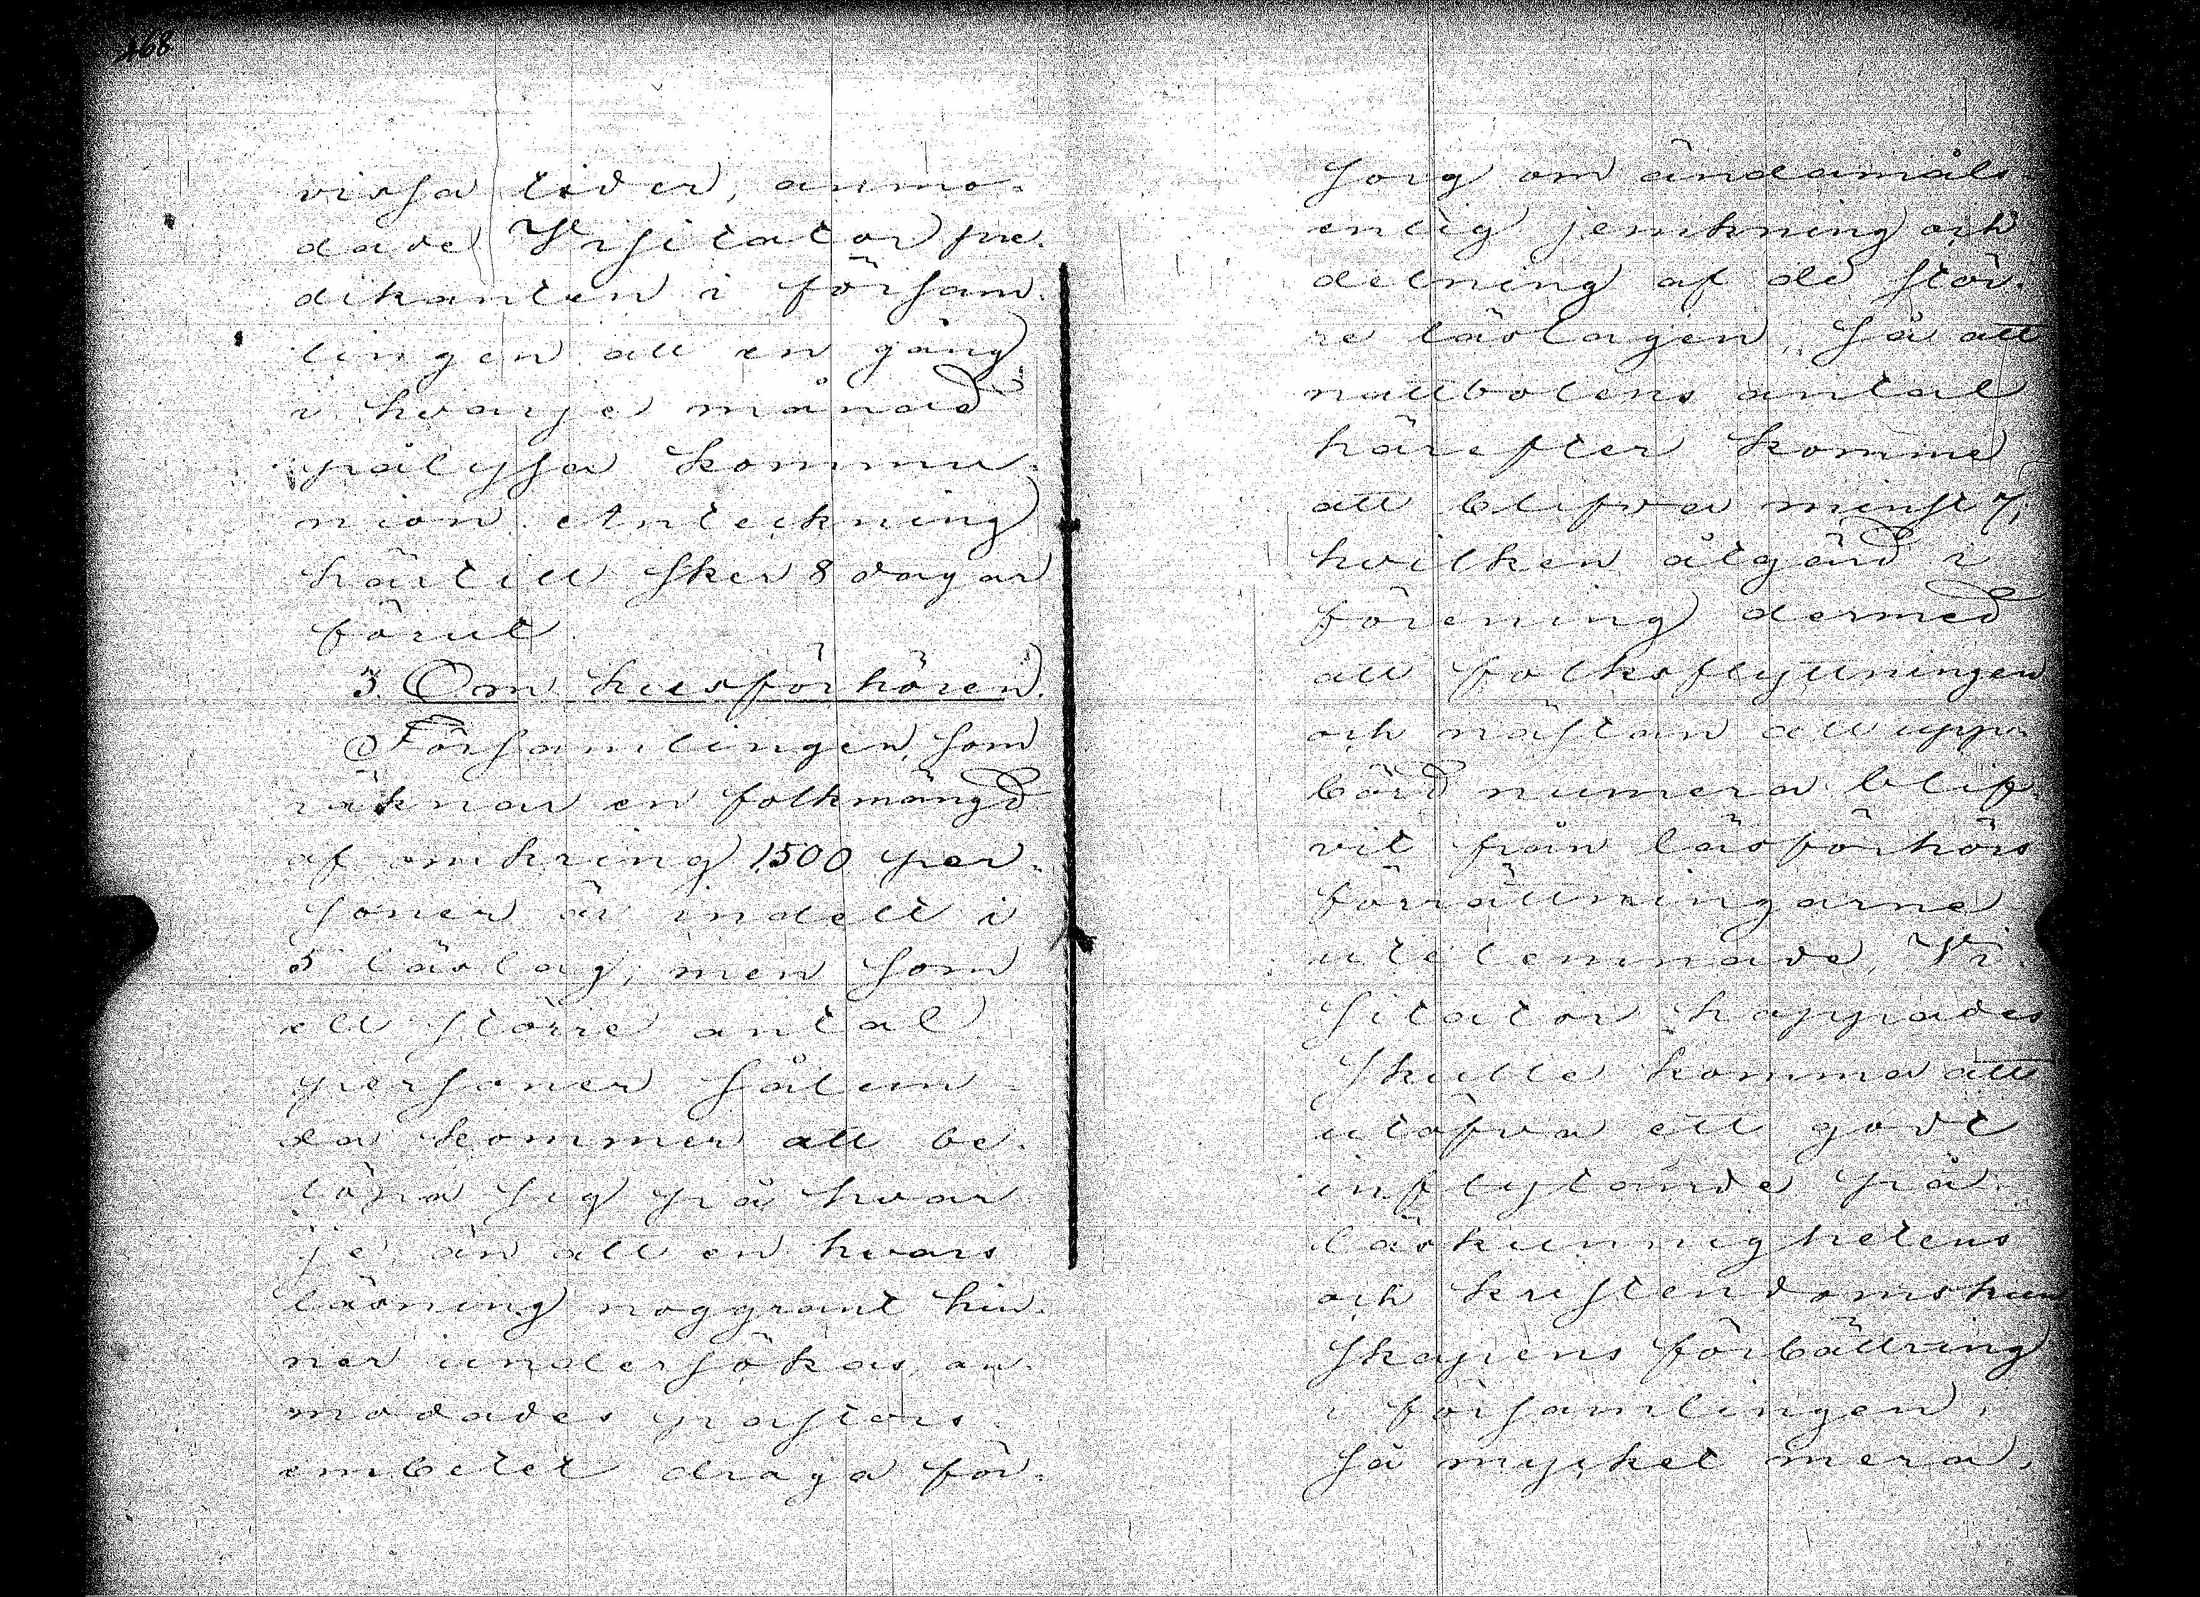 168
vissa tider, anmo-
dade Visitator pre-
dikanten i försam-
lingen att en gång
i hvarje månad
pålysa kommu-
nion. Anteckning
härtill sker 8 dagar
förut.
3. Om husförhören.
Församlingen, som
räknar en folkmängd
af omkring 1500 per-
soner är indelt i
5 läslag; men som
ett större antal
personer sålun-
da kommer att be-
löpa sig på hvar
je, än att en hvars
läsning noggrant hin-
ner undersökas, an-
modades pastors
embetet draga för-
sorg om ändamåls-
enlig jemkning och
delning af de stör-
re läslagen, så att
nattbolens antal
härefter komme
att blifva minst 7,
hvilken åtgärd i
förening dermed
att folksflyttningen
och nästan all upp-
börd numera blif-
vit från läsförhörs
förrättningarne
utelemnade, Vi-
sitator hoppades
skulle komma att
utöfva ett godt
inflytande på
läskunnighetens
och kristendomskun
skapens förbättring
i församlingen,
så mycket mera,